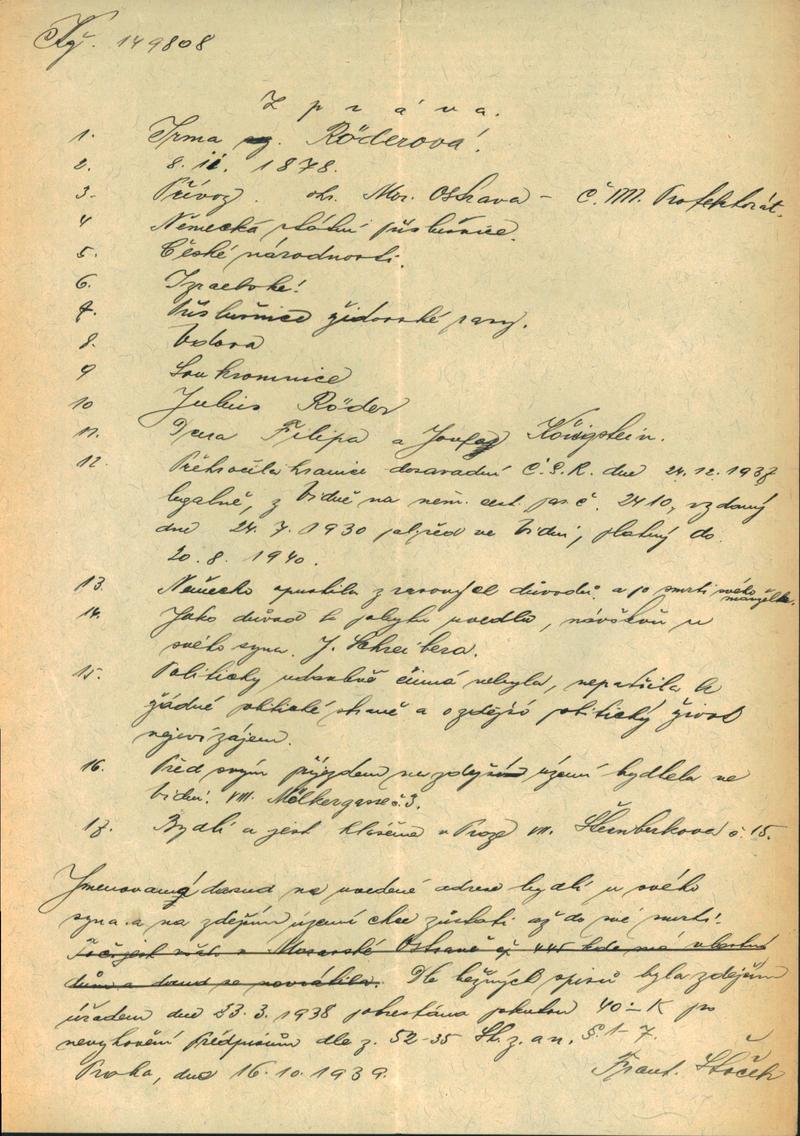 149808
Zpráva.
1. Irma Röderová!
2. 8. 11. 1878.
3. Přívoz. okr. Mor. Ostrava – Č. M. Protektorát.
4 Německá státní příslušnice.
5. České národnosti.
6. Izraelské!
7. Příslušnice židovské rasy.
8. Vdova
9 Soukromnice
10 Julius Röder
11. Dcera Filipa a Königstein.
12. Překročila hranice dosavadní Č.S.R. dne 24.12.1937
legálně, z Vídně na něm. cest. pas č. 2410, vydaný
dne 24. 7. 1930 ve Vídni, platný do
20. 8. 1940.
13. Německo opustila z rasových důvodů. a po smrti svého
manžela.
14. Jako důvod k pobytu uvedla, návštěvu u
svého syna. J. Schreibera.
15. Politicky činná nebyla, nepatřila k
žádné politické straně a o zdejší politický život
nejeví zájem.
16. Před svým příjezdem na zdejší území bydlela ve
Vídni. VIII. Mölkergasse č. 3.
17. Bydlí a jest hlášena v Praze VII. Šternberkova č. 15.
Jmenovaná dosud na uvedené adrese bydlí u svého
syna a na zdejším území chce zůstati až do své smrti!
v Moravské Ostravě čp 445 kde má vlastní
dům a dosud se nevrátila. Dle běžných spisů byla zdejším
úřadem dne 23. 3. 1938 potrestána pokutou 40.- K pro
nevyhovění předpisům dle z. 52-35 Sb. z. a n. § 1-7.
Praha, dne 16. 10. 1939. Frant.